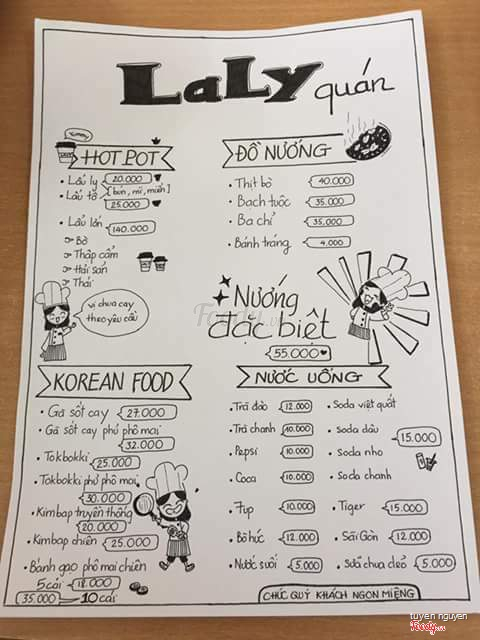 LaLy quán
Yummy
HOT POT
• Lẩu ly 20.000
[bún, mì, miến]
• Lẩu tô 25.000
• Lẩu lớn 140.000
Bò
Thập cẩm
Hải sản
Thái
Vị chua cay
theo yêu cầu
ĐỒ NƯỚNG
• Thịt bò 40.000
• Bạch tuộc 35.000
• Ba chỉ 35.000
• Bánh tráng 4.000
Nướng
đặc biệt
55.000
Foody.vn
KOREAN FOOD
• Gà sốt cay 27.000
• Gà sốt cay phủ phô mai
32.000
• Tokbokki
25.000
• Tokbokki phủ phô mai
30.000
• Kimbap truyền thống
20.000
• Kimbap chiên 25.000
• Bánh gạo phô mai chiên
5 cái 18.000
35.000 10 cái
NƯỚC UỐNG
• Trà đào 12.000
• Trà chanh 10.000
• Pepsi 10.000
• Coca 10.000
• 7up 10.000
• Bò húc 12.000
• Nước suối 5.000
• Soda việt quất
• Soda dâu
15.000
• Soda nho
• Soda chanh
• Tiger 15.000
• Sài Gòn 12.000
• Sữa chua dẻo 5.000
CHÚC QUÝ KHÁCH NGON MIỆNG
tuyen nguyen
Foody.vn